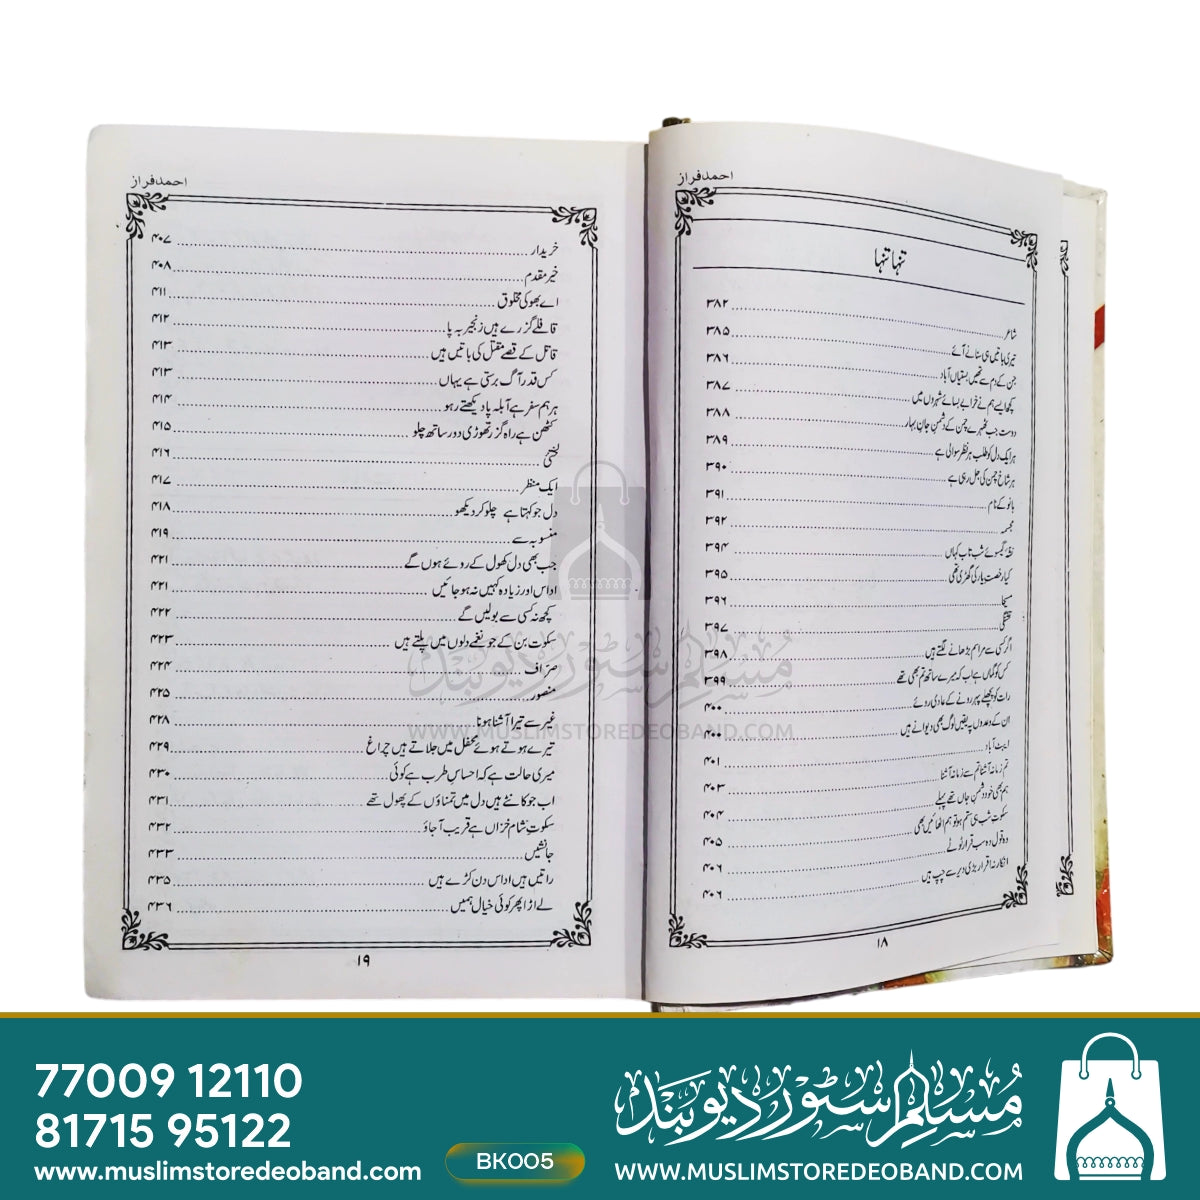 احمد فراز
تنہا تنہا
شاعر ۳۸۲
تیری باتیں ہی سنانے آئے ۳۸۵
جن کے دم سے تھیں بستیاں آباد ۳۸۶
کچھ ایسے ہم نے خرابے بسائے شہروں میں ۳۸۷
دوست جب ٹھہرے چمن کے دشمنِ جانِ بہار ۳۸۸
ہر ایک دل کو طلب ہر نظر سوالی ہے ۳۸۹
ہر شاخ چمن کی جل رہی ہے ۳۹۰
بانو کے نام ۳۹۱
مجسمہ ۳۹۲
گیسوئے شب تاب کہاں ۳۹۴
کیا رخصتِ یار کی گھڑی تھی ۳۹۵
مسیحا ۳۹۶
تشنگی ۳۹۷
اگر کسی سے مراسم بڑھانے لگتے ہیں ۳۹۸
کس کو گماں ہے اب کہ میرے ساتھ تم بھی تھے ۳۹۹
رات کو پچھلے پہر رونے کے عادی روئے ۴۰۰
ان کے وعدوں پہ یقیں لوگ بھی دیوانے ہیں ۴۰۰
ایبٹ آباد ۴۰۱
تم زمانہ آشنا تم سے زمانہ آشنا ۴۰۳
ہم بھی خود دشمنِ جاں تھے پہلے ۴۰۴
سکوتِ شب ہی ستم ہو تو ہم اٹھائیں بھی ۴۰۵
وہ قول وہ سب قرار ٹوٹے ۴۰۶
انکار نہ اقرار بڑی دیر سے چپ ہیں ۴۰۶
۱۸
احمد فراز
خریدار ۴۰۷
خیر مقدم ۴۰۸
اے بھوکی مخلوق ۴۱۱
قافلے گزرے ہیں زنجیر بہ پا ۴۱۲
قاتل کے قصے مقتل کی باتیں ہیں ۴۱۳
کس قدر آگ برستی ہے یہاں ۴۱۳
ہر ہم سفر ہے آبلہ پا دیکھتے رہو ۴۱۴
کٹھن ہے راہ گزر تھوڑی دور ساتھ چلو ۴۱۵
۴۱۶
ایک منظر ۴۱۷
دل جو کہتا ہے چلو کر دیکھو ۴۱۸
منسوبہ سے ۴۱۹
جب بھی دل کھول کے روئے ہوں گے ۴۲۱
اداس اور زیادہ کہیں نہ ہو جائیں ۴۲۱
کچھ نہ کسی سے بولیں گے ۴۲۲
سکوت بن کے جو نغمے دلوں میں پلتے ہیں ۴۲۳
صرّاف ۴۲۴
منصور ۴۲۵
غیر سے تیرا آشنا ہونا ۴۲۸
تیرے ہوتے ہوئے محفل میں جلاتے ہیں چراغ ۴۲۹
میری حالت ہے کہ احساسِ طرب ہے کوئی ۴۳۰
اب جو کانٹے ہیں دل میں تمناؤں کے پھول تھے ۴۳۱
سکوتِ شامِ خزاں ہے قریب آ جاؤ ۴۳۲
جانشیں ۴۳۳
راتیں ہیں اداس دن کڑے ہیں ۴۳۵
لے اڑا پھر کوئی خیال ہمیں ۴۳۶
۱۹
مُسلم سٹور دیوبند
WWW.MUSLIMSTOREDEOBAND.COM
77009 12110
81715 95122
www.muslimstoredeoband.com
BK005
مُسلم سٹور دیوبند
WWW.MUSLIMSTOREDEOBAND.COM